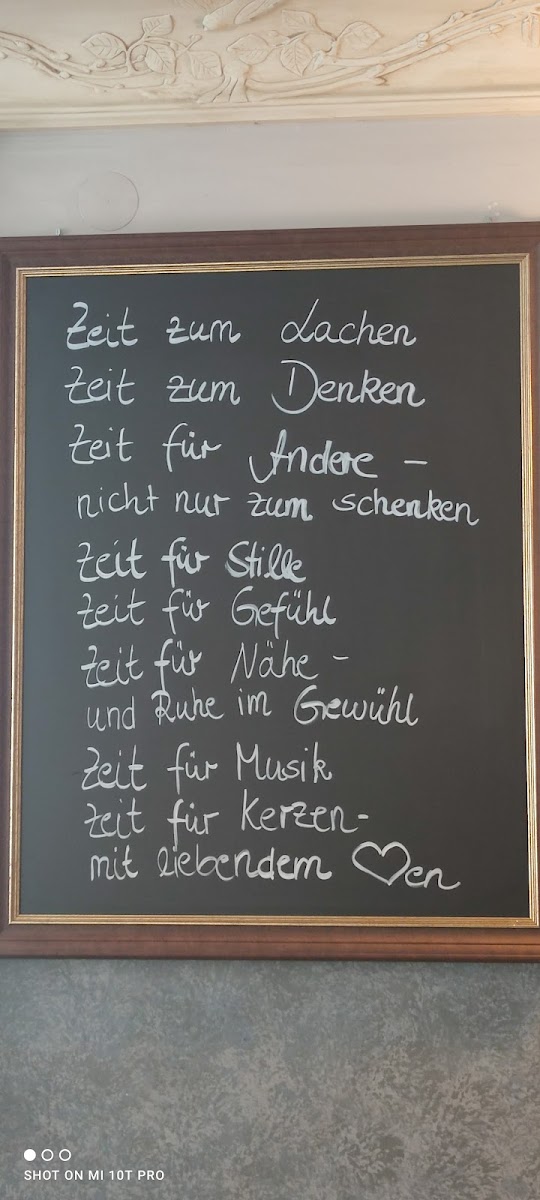 Zeit zum Lachen
Zeit zum Denken
Zeit für Andere –
nicht nur zum schenken
Zeit für Stille
Zeit für Gefühl
Zeit für Nähe –
und Ruhe im Gewühl
Zeit für Musik
Zeit für Kerzen-
mit liebendem ♡en
SHOT ON MI 10T PRO